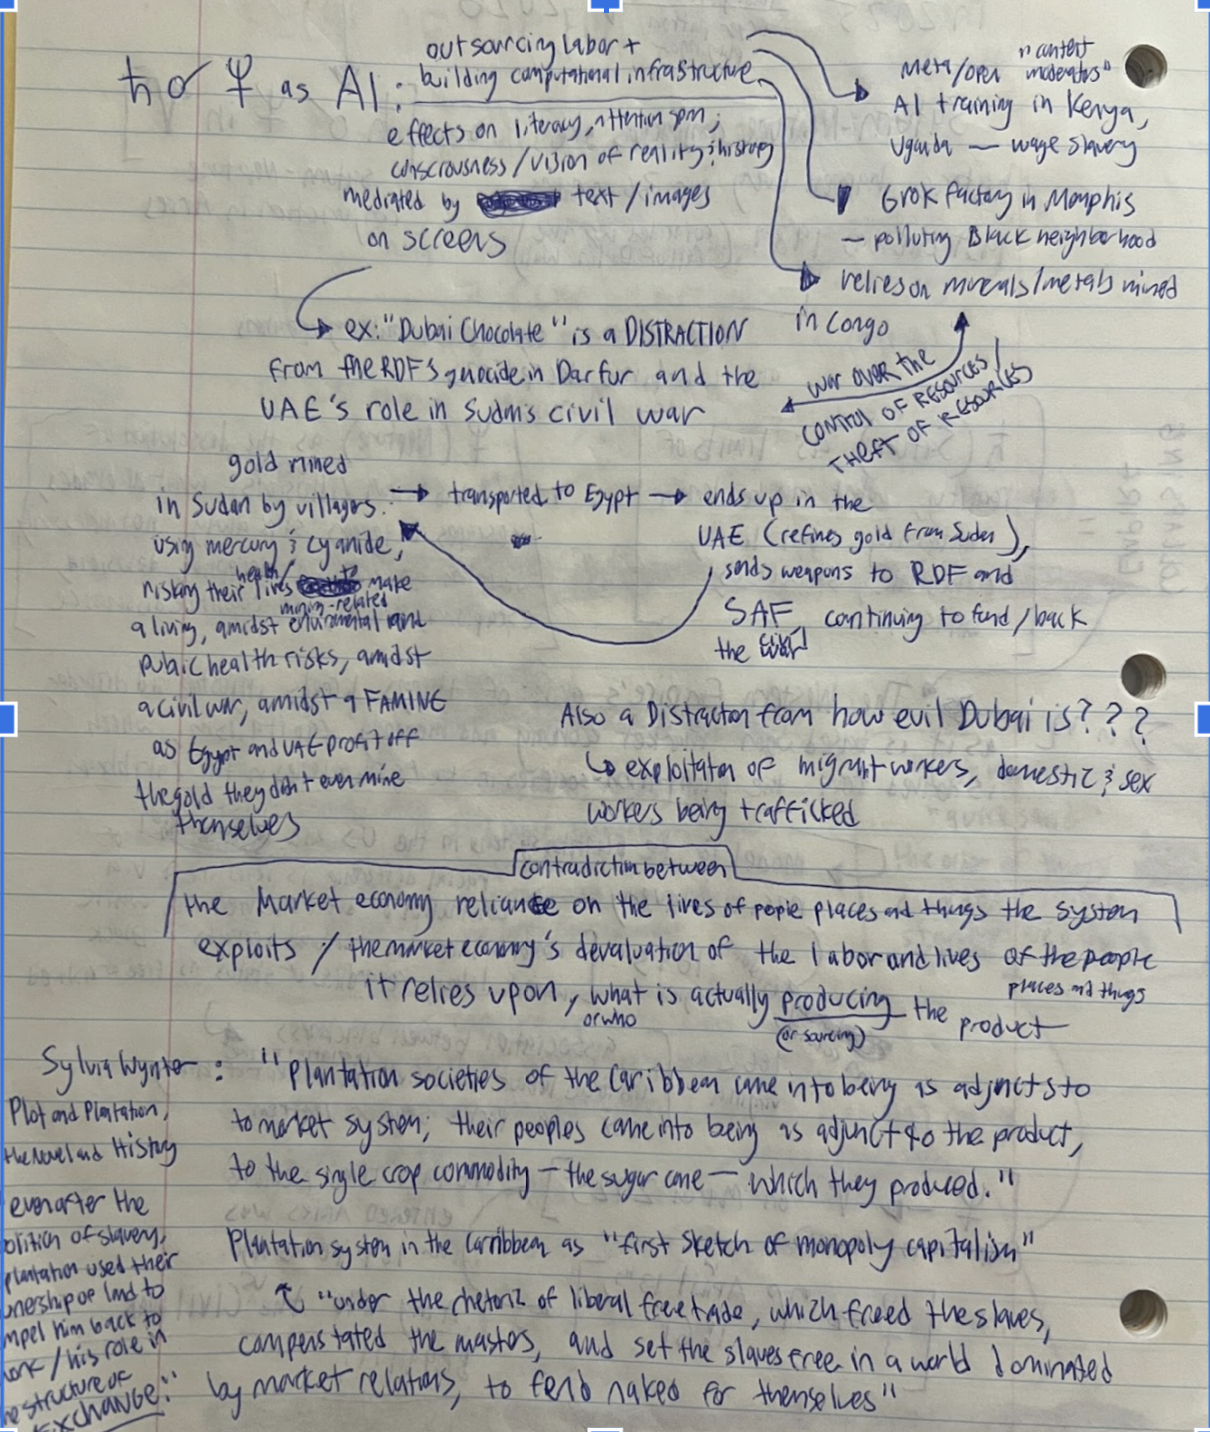 ħ ♂ Ψ as AI: outsourcing labor +
building computational infrastructure
effects on literacy, attention span;
consciousness/vision of reality & history
mediated by text/images
on screens
Meta/Open "content moderators"
AI training in Kenya,
Uganda — wage slavery
Grok factory in Memphis
— polluting Black neighborhood
relies on minerals/metals mined
in Congo
war over the
control of resources/
theft of resources
ex: "Dubai Chocolate" is a DISTRACTION
from the RDF's genocide in Darfur and the
UAE's role in Sudan's civil war
gold mined
in Sudan by villagers
using mercury & cyanide,
risking their health/lives to make
a living, amidst mining-related enviromental and
public health risks, amidst
a civil war, amidst a FAMINE
as Egypt and UAE profit off
the gold they didn't even mine
themselves
transported to Egypt
ends up in the
UAE (refines gold from Sudan),
sends weapons to RDF and
SAF, continuing to fund/back
the civil war
Also a Distraction from how evil Dubai is???
exploitation of migrant workers, domestic & sex
workers being trafficked
contradiction between
the Market economy reliance on the lives of people places and things the system
exploits / the market economy's devaluation of the labor and lives of the people
places and things
it relies upon, what or who is actually producing (or sourcing) the product
Sylvia Wynter: "Plantation societies of the Caribbean came into being as adjuncts to
to market system; their peoples came into being as adjunct to the product,
to the single crop commodity — the sugar cane — which they produced."
Plot and Plantation,
the Novel and History
even after the
olition of slavery,
plantation used their
wnership of land to
mpel him back to
work / his role in
he structure of
EXCHANGE."
Plantation system in the Carribbean as "first sketch of monopoly capitalism"
"under the rhetoric of liberal free trade, which freed the slaves,
compenstated the masters, and set the slaves free in a world dominated
by market relations, to fend naked for themselves"